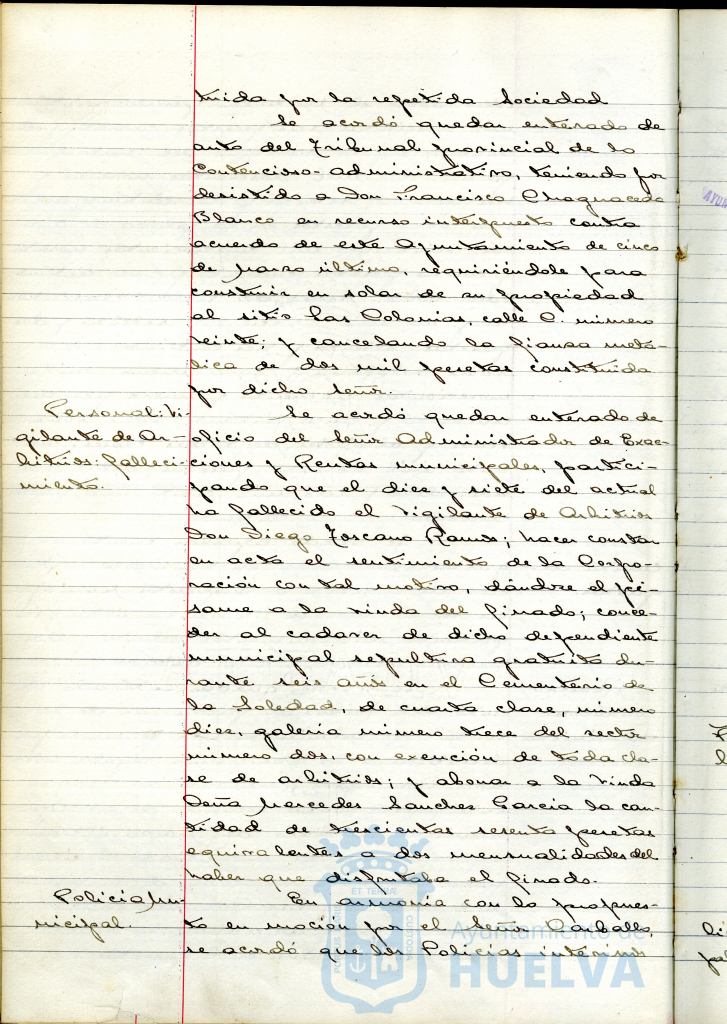 tuida por la repetida Sociedad
Se acordó quedar enterado de
auto del Tribunal provincial de lo
Contencioso-administrativo, teniendo por
desistido a Don Francisco Chaguaceda
Blanco en recurso interpuesto contra
acuerdo de este Ayuntamiento de cinco
de Marzo último, requiriéndole para
construir en solar de su propiedad
al sitio Las Colonias, calle C. número
veinte; y cancelando la fianza metá-
lica de dos mil pesetas constituida
por dicho Señor.
Personal: Vi-
gilante de Ar-
bitrios: falleci-
miento.
Se acordó quedar enterado de
oficio del Señor Administrador de Exac-
ciones y Rentas municipales, partici-
pando que el diez y siete del actual
ha fallecido el Vigilante de Arbitrios
Don Diego Toscano Ramos; hacer constar
en acta el sentimiento de la Corpo-
ración con tal motivo, dándose el pé-
same a la viuda del finado; conce-
der al cadaver de dicho dependiente
municipal sepultura gratuita du-
rante seis años en el Cementerio de
la Soledad, de cuarta clase, número
diez, galería número trece del sector
número dos, con exención de toda cla-
se de arbitrios; y abonar a la viuda
Doña Mercedes Sanchez Garcia la can-
tidad de trescientas sesenta pesetas
equivalentes a dos mensualidades del
haber que disfrutaba el finado.
Policía Mu-
nicipal.
En armonía con lo propues-
to en moción por el Señor Carballo,
se acordó que los Policías interinos
Ayuntamiento de
HUELVA